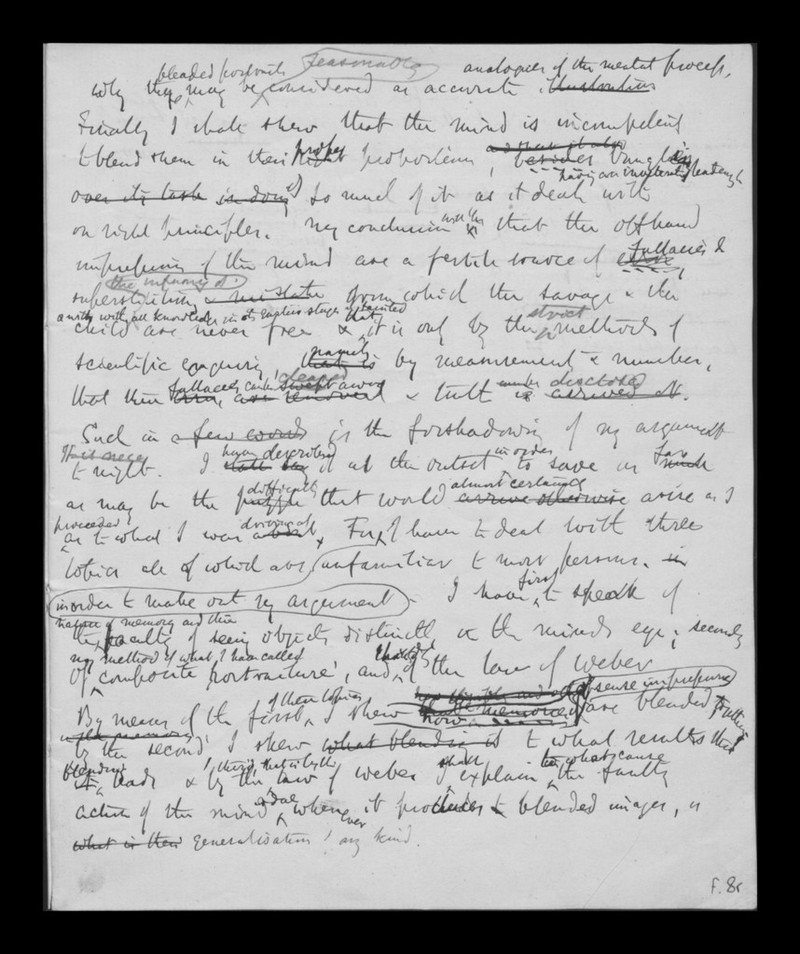 blended portraits reasonably analogues of the mental process,
why they may be considered as accurate illustrations
Finally I shall shew that the mind is incompetent
to blend them in their right proper proportions, besides bungling
over its task in doing so much of it as it deals with
on right principles. My conclusion will be that the offhand
impressions of the mind are a fertile source of fallacies &
the infancy of
superstition, a mistake from which the savage & the
child are never free & that it is only by the strict methods of
scientific enquiry, namely that is by measurement & number,
that these fallacies can be cleared swept away & truth is disclosed arrived at.
Such in a few words is the forshadowing of my argument
to night. I have described it at the outset in order to save us far
as may be the difficulty puzzle that would almost certainly arise otherwise arise as I
proceeded as to what I was driving at about. First, I have to deal with three
topics all of which are unfamiliar to most persons. in
in order to make out my argument I have first to speak of
nature of memory and the
the faculty of seeing objects distinctly in the minds eye; secondly
my method of what I have called
of composite portraiture, and thirdly of the law of Weber
By means of the first of these topics, I shew how sense impressions are blended together
in the memory
by the second, I shew what blending is to what results this
blending leads & by the third, that is by the law of Weber I shall explain what cause the faulty
action of the mind is due whenever it produces blended images, or
what is their generalisations of any kind.
f. 8r